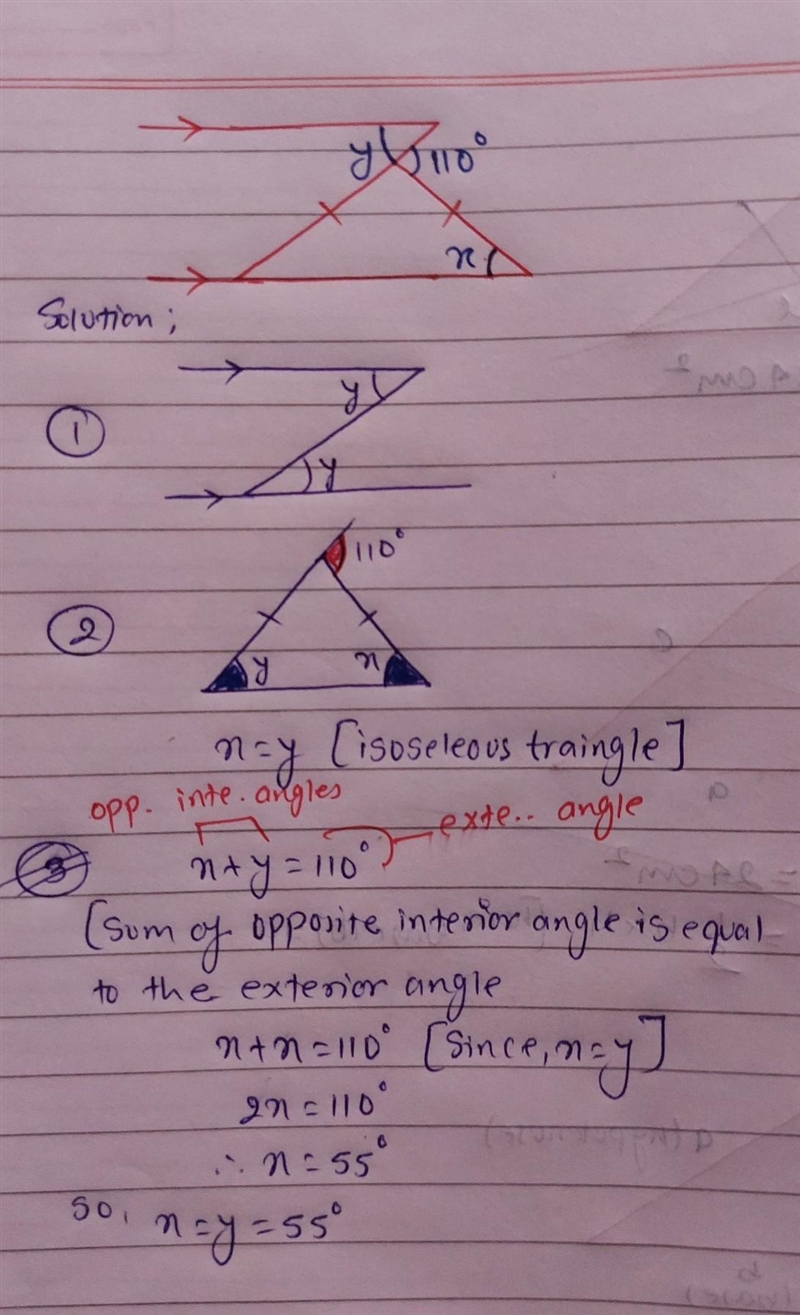 y 110°
x
Solution;
y
① y
110°
②
y x
x=y [isoseleous traingle]
opp. inte. angles
exte.. angle
③ x+y=110°
(sum of opposite interior angle is equal
to the exterior angle
x+x=110° [Since, x=y]
2x=110°
∴ x=55°
So, x=y=55°